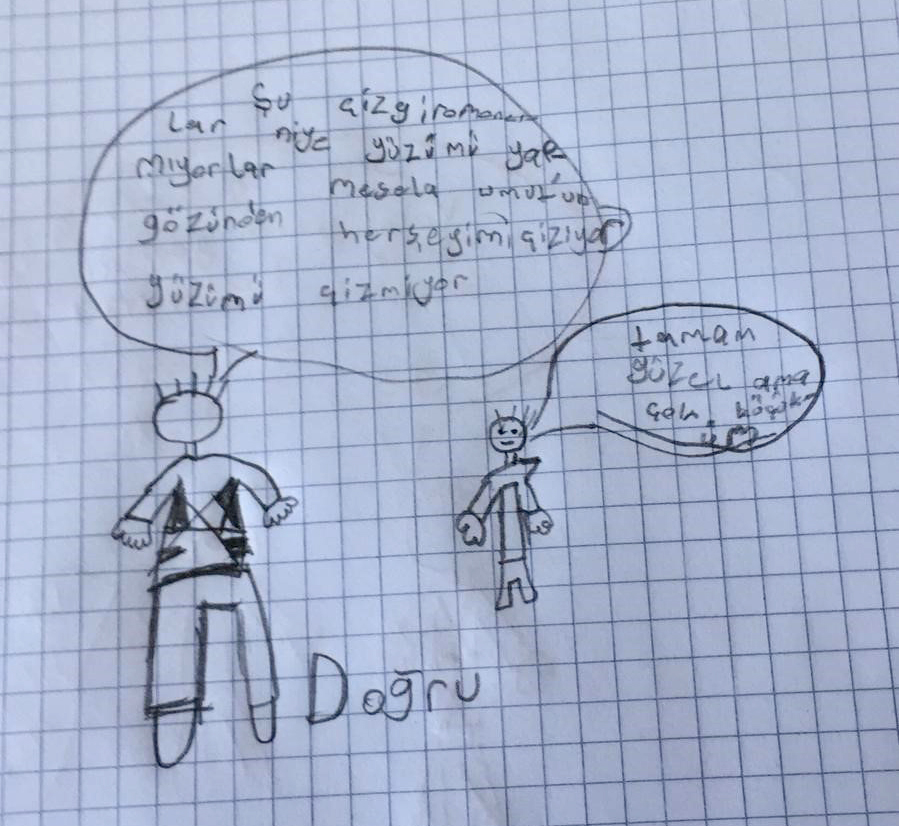 Şu çizgiroman
lar niye yüzümü yap
mıyorlar mesela umutun
gözünden herşeyimi çiziyor
yüzümü çizmiyor
tamam
güzel ama
çok küçük
Doğru